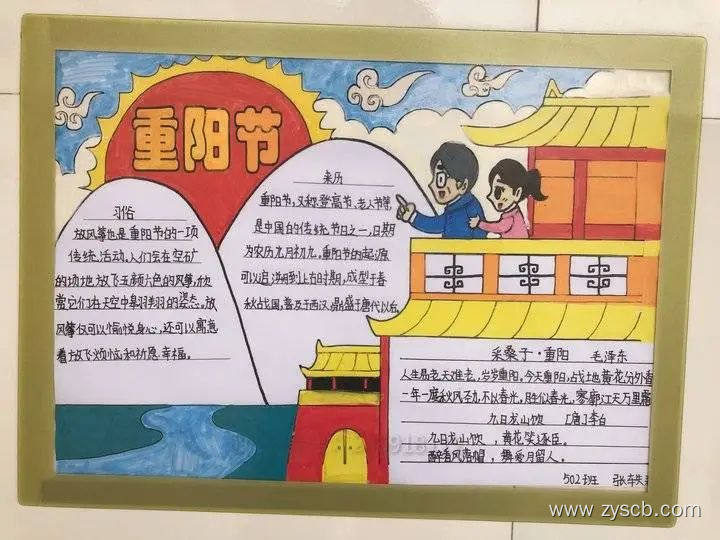 重阳节
习俗
放风筝也是重阳节的一项
传统活动,人们会在空矿
的场地放飞五颜六色的风筝,欣
赏它们在天空中翱翔的姿态。放
风筝仅可以愉悦身心,还可以寓意
着放飞烦恼和祈愿幸福。
来历
重阳节,又称登高节、老人节等
是中国的传统节日之一,日期
为农历九月初九。重阳节的起源
可以追溯到上古时期,成型于春
秋战国,普及于西汉,鼎盛于唐代以后
采桑子·重阳 毛泽东
人生易老天难老,岁岁重阳,今天重阳,战地黄花分外香
一年一度秋风劲,不似春光,胜似春光,寥廓江天万里霜
九日龙山饮 [唐]李白
九日龙山饮,黄花笑逐臣。
醉看风落帽,舞爱月留人。
502班 张轶
www.zyscb.com